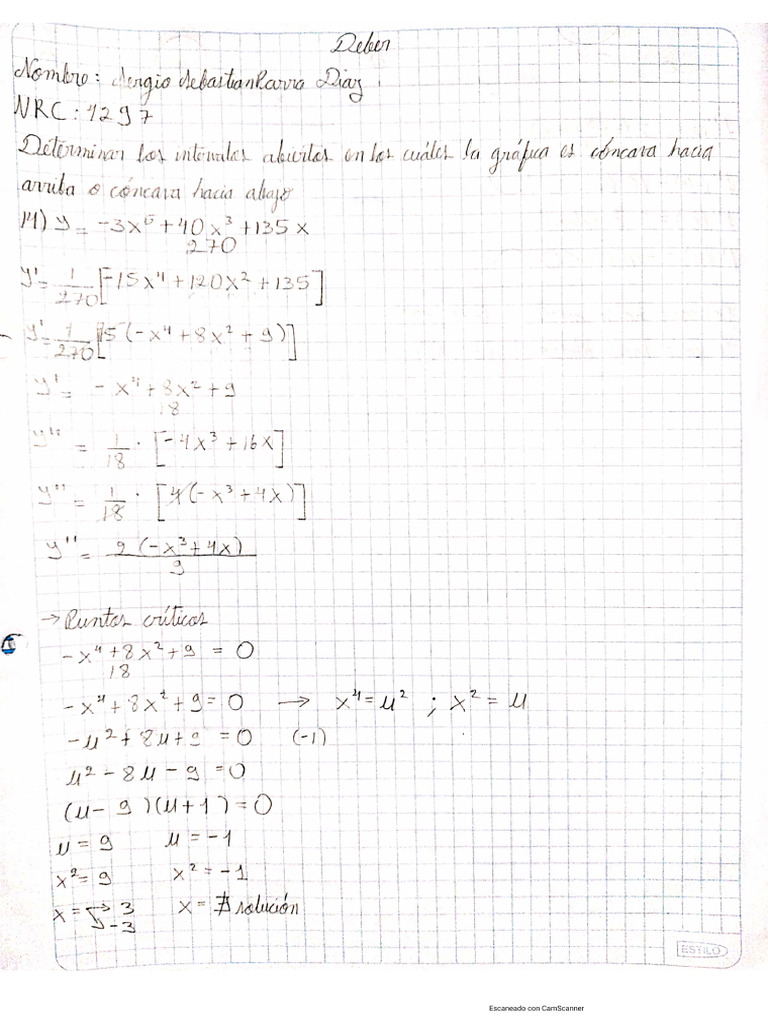 Deber
Nombre: Sergio Sebastian Parra Diaz
NRC: 4297
Determinar los intervalos abiertos en los cuáles la gráfica es cóncava hacia
arriba o cóncava hacia abajo
14) y = -3x⁵ + 40x³ + 135x
270
y' = 1/270 [-15x⁴ + 120x² + 135]
y' = 1/270 [15(-x⁴ + 8x² + 9)]
y' = -x⁴ + 8x² + 9
18
y'' = 1/18 · [-4x³ + 16x]
y'' = 1/18 · [4(-x³ + 4x)]
y'' = 2(-x³ + 4x)
9
→ Puntos críticos
-x⁴ + 8x² + 9 = 0
18
-x⁴ + 8x² + 9 = 0 → x⁴ = u² ; x² = u
-u² + 8u + 9 = 0 (-1)
u² - 8u - 9 = 0
(u - 9)(u + 1) = 0
u = 9 u = -1
x² = 9 x² = -1
x = → 3 x = ∄ solución
↘ -3
ESTILO
Escaneado con CamScanner